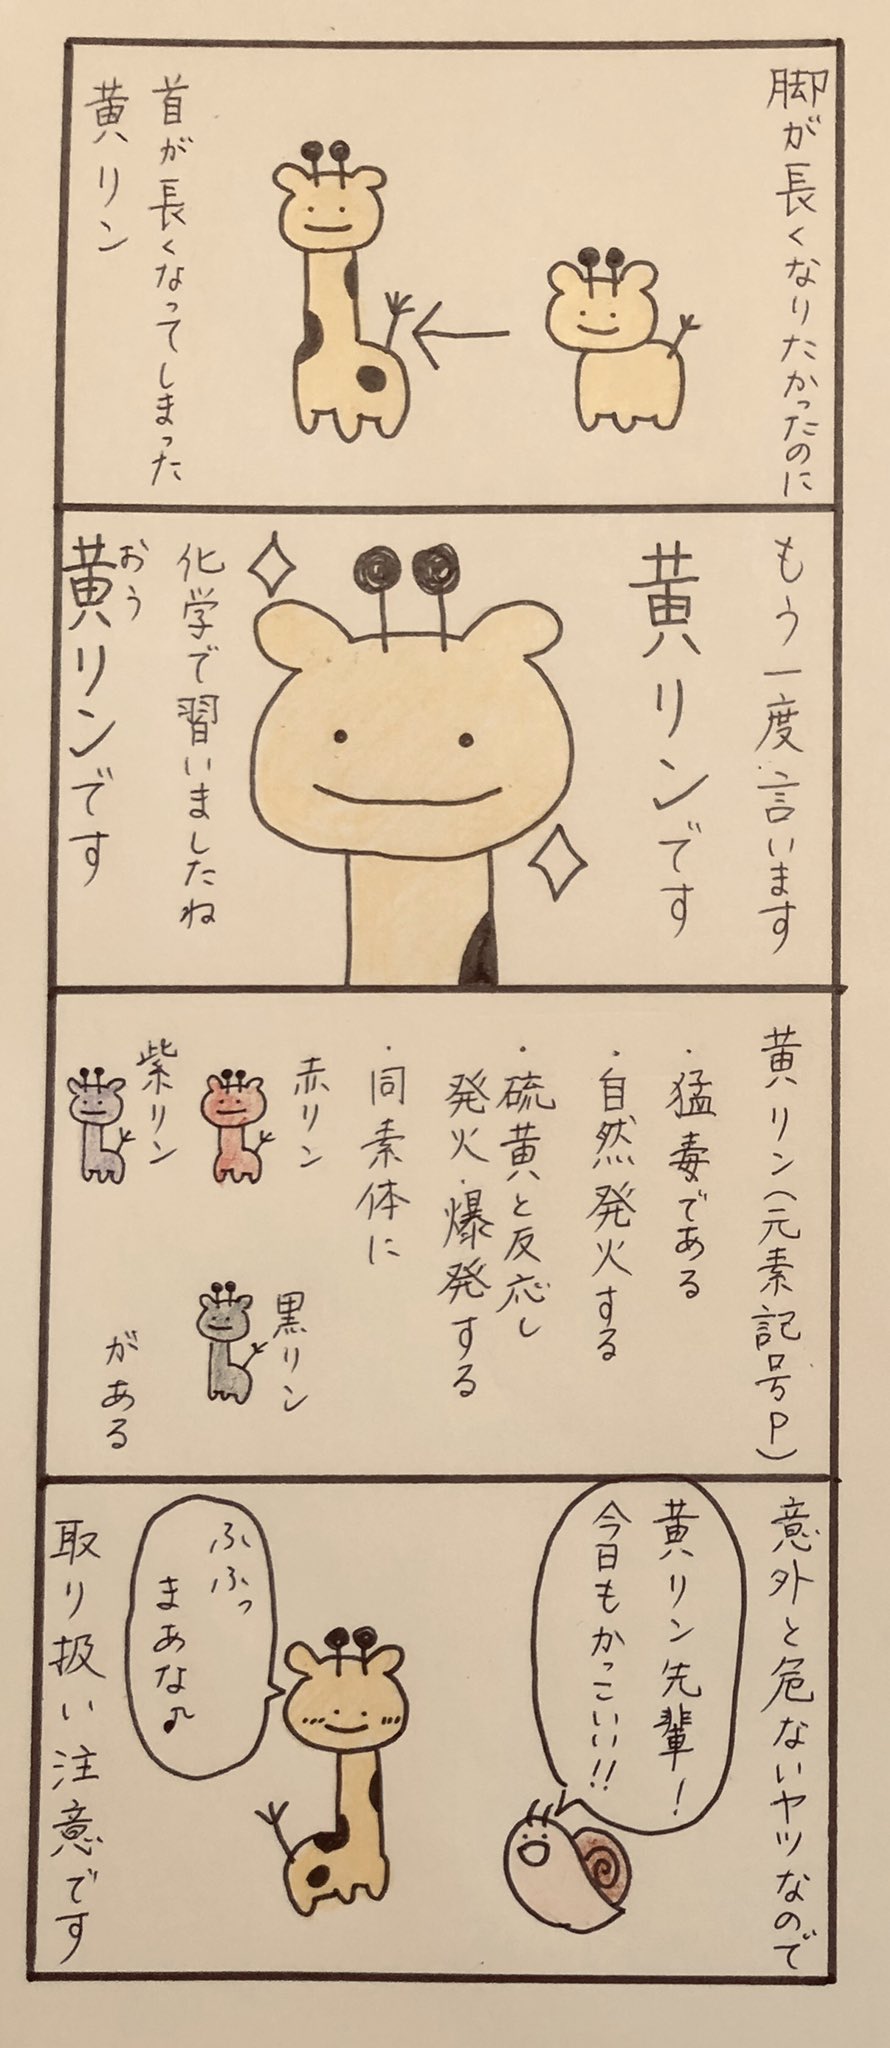 脚が長くなりたかったのに
首が長くなってしまった
黄リン
もう一度言います
黄リンです
化学で習いましたね
おう
黄リンです
黄リン(元素記号P)
・猛毒である
・自然発火する
・硫黄と反応し
発火・爆発する
・同素体に
赤リン
紫リン
黒リン
がある
意外と危ないヤツなので
黄リン先輩!
今日もかっこいい!!
ふふっ
まあな♪
取り扱い注意です